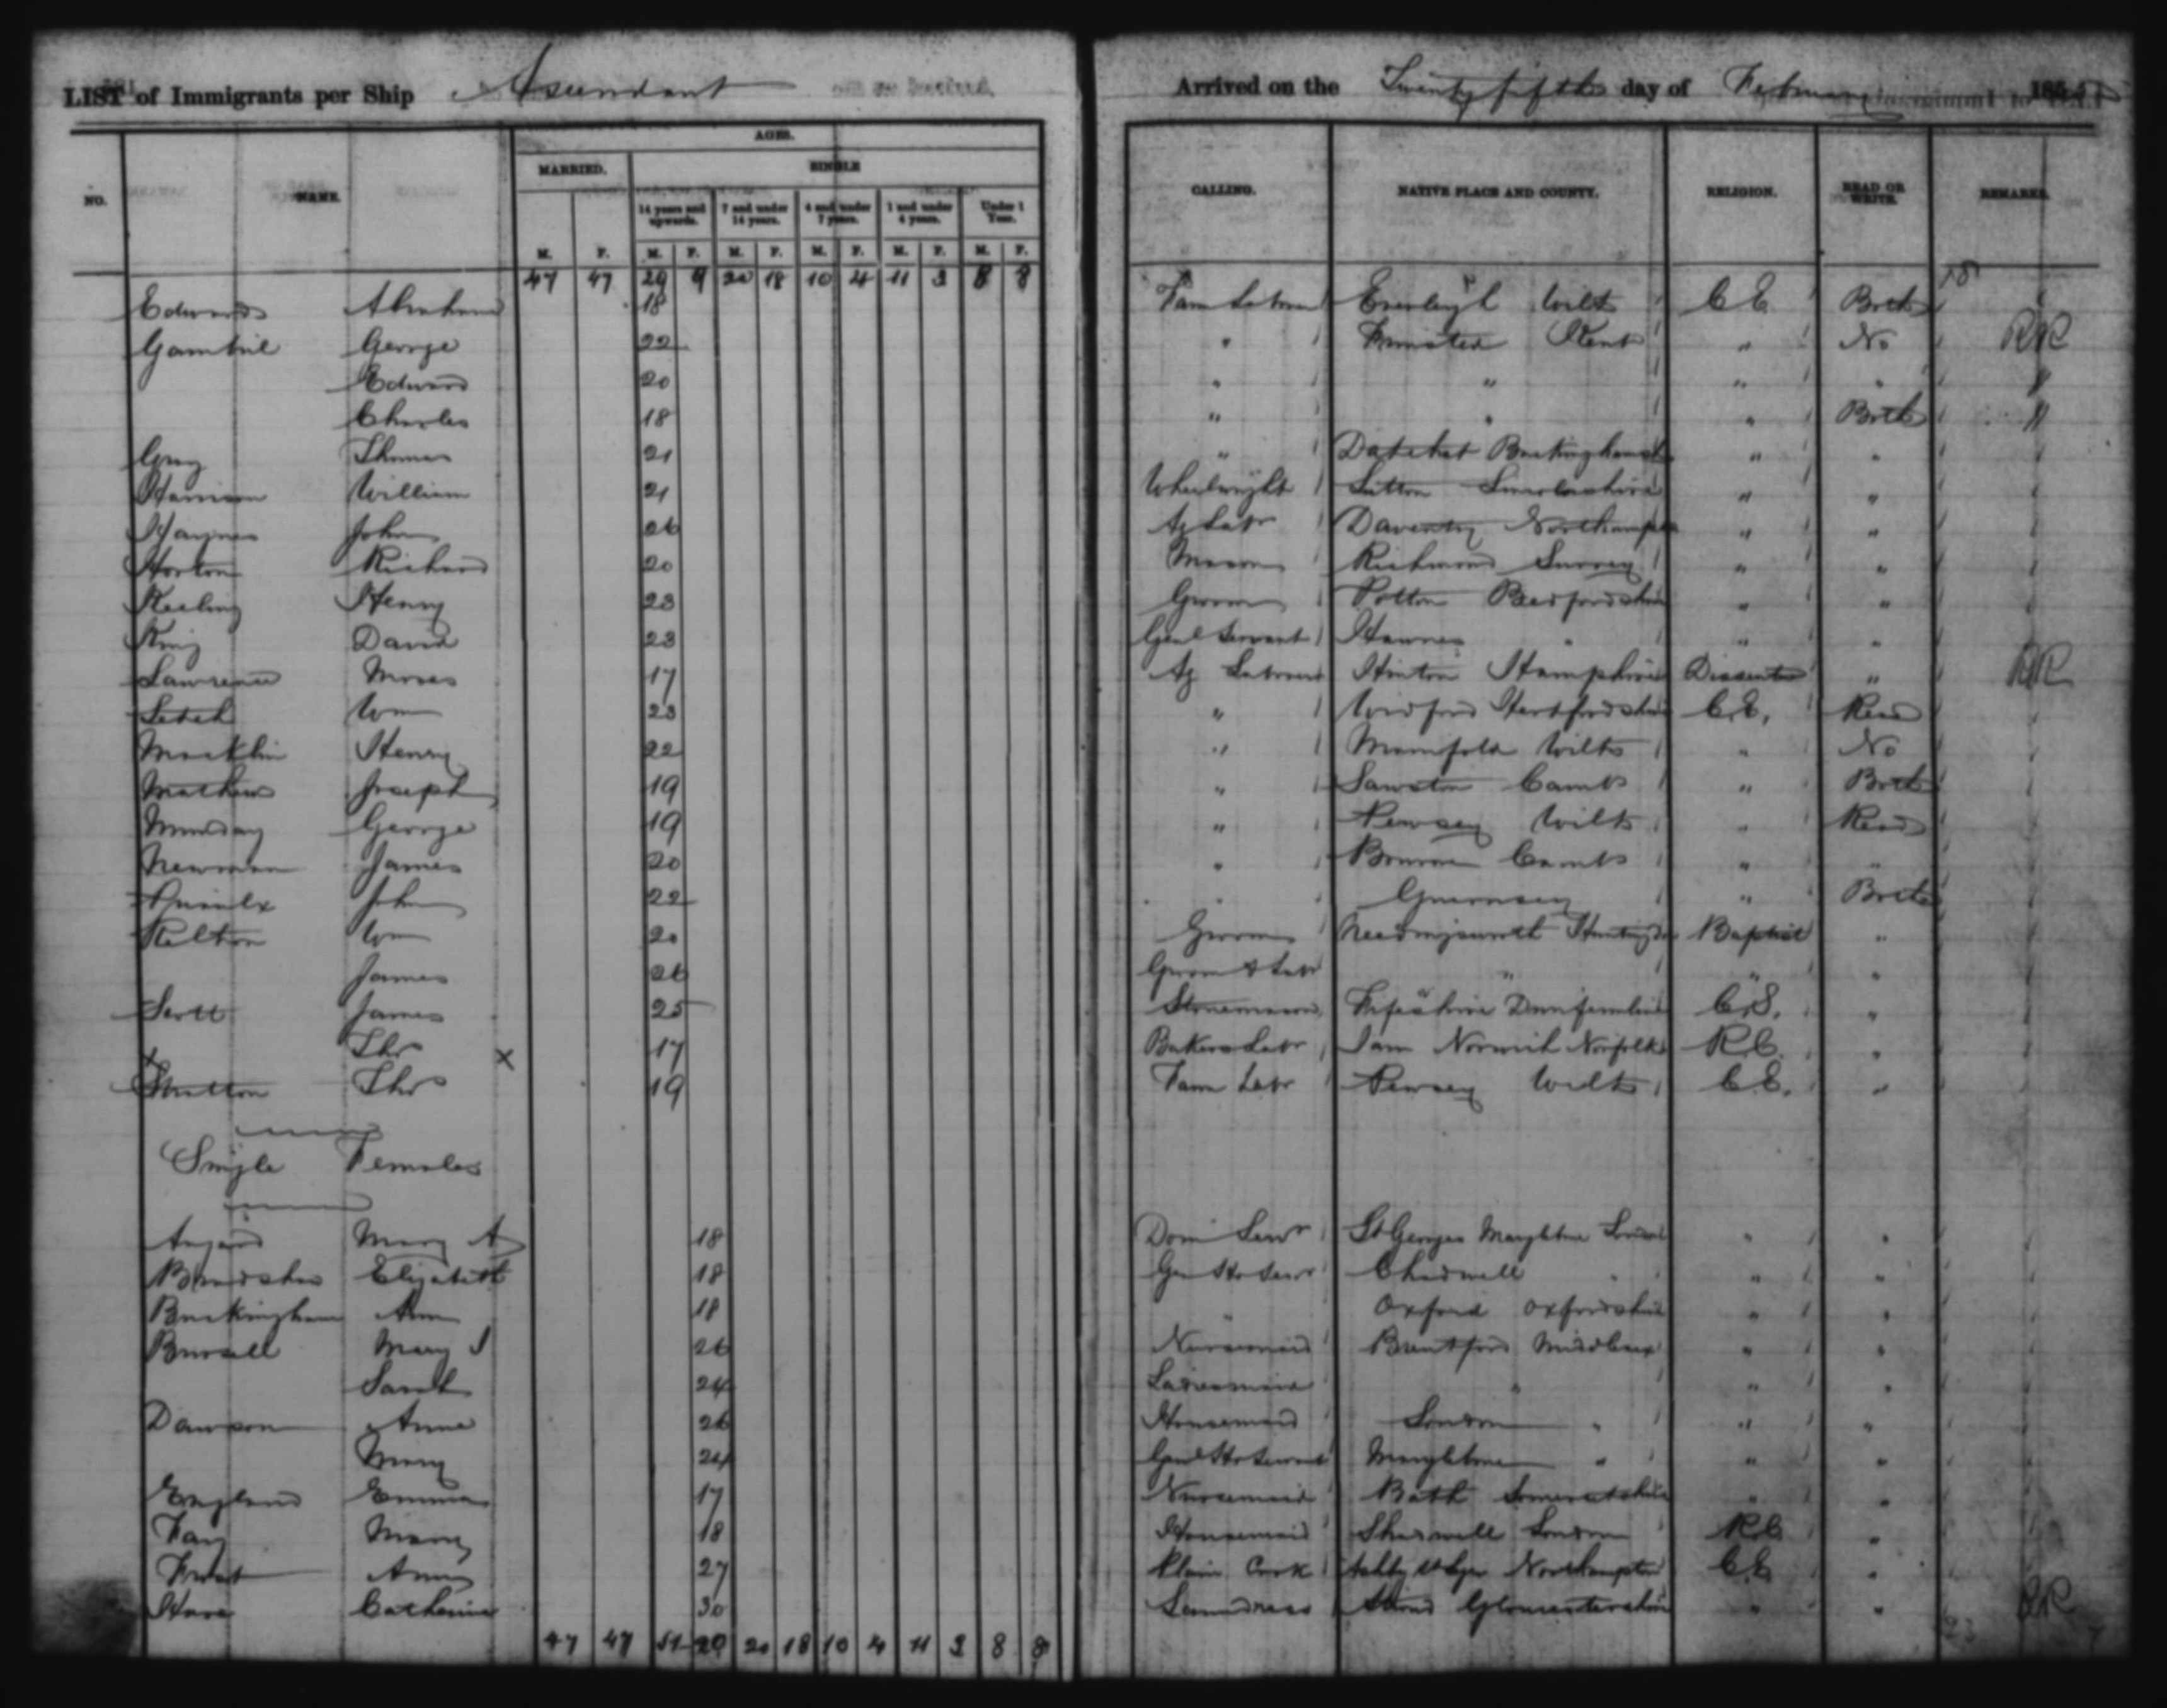 LIST of Immigrants per Ship Ascendant Arrived on the Twenty fifth day of February 185
AGES.
MARRIED. SINGLE
NO. NAME. 14 years and upwards. 7 and under 14 years. 4 and under 7 years. 1 and under 4 years. Under 1 Year. CALLING. NATIVE PLACE AND COUNTY. RELIGION. READ OR WRITE. REMARKS.
M. F. M. F. M. F. M. F. M. F. M. F.
47 47 29 9 20 18 10 4 11 3 8 8
Edwards Abraham 18 Farm Labour Everleigh Wilts C E Both
George 22 " Kent " No RR
Edward 20 " " " " "
Charles 18 " " " Both "
Gray Thomas 21 " Datchet Buckinghamsh " "
Harrison William 21 Wheelwright Sutton Lincolnshire " "
Haynes John 26 Ag Labr Daventry Northampton " "
Horton Richard 20 Mason Richmond Surrey " "
Keeling Henry 23 Groom Potton Bedfordshire " "
King David 23 Genl Servant Hawnes " " "
Lawrence Moses 17 Ag Labourer Hinton Hampshire Dissenter " RR
Letch Wm 23 " Widford Hertfordshire C.E. Read
Macklin Henry 22 " Wilts " No
Mathews Joseph 19 " Sawston Cambs " Both
Munday George 19 " Pewsey Wilts " Read
Newman James 20 " Cambs " "
John 22 " Guernsey " Both
Wm 20 Groom Needingworth Huntingdon Baptist "
James 26 Groom & Labr " " "
Scott James 25 Stonemason Fifeshire Dunfermline C.S. "
Thos × 17 Bakers Labr Norwich Norfolk R.C. "
Stratton Thos 19 Farm Labr Pewsey Wilts C.E. "
Single Females
Mary A 18 Dom Servt St Georges Marylebone London " "
Bradshaw Elizabeth 18 Gen Ho Servt Chadwell " " "
Buckingham Ann 18 " Oxford Oxfordshire " "
Bursell Mary J 26 Nursemaid Brentford Middlesex " "
Sarah 24 Ladiesmaid " " "
Dawson Anne 26 Housemaid London " " "
Mary 24 Genl Ho Servant Marylebone " " "
England Emma 17 Nursemaid Bath Somersetshire " "
Fay Mary 18 Housemaid London R C "
Frost Ann 27 Plain Cook Ashby St Northampton C E "
Hare Catherine 30 Laundress Stroud Gloucestershire " " RR
47 47 51 20 20 18 10 4 11 3 8 8